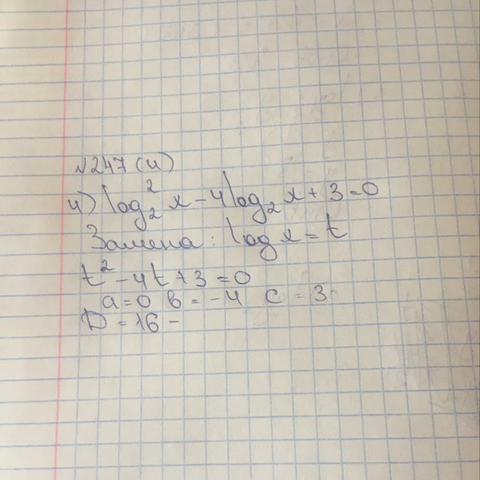 №247(4)
4) log₂² x - 4log₂ x + 3 = 0
Замена: log x = t
t² - 4t + 3 = 0
a = 0 b = -4 c = 3
D = 16 -